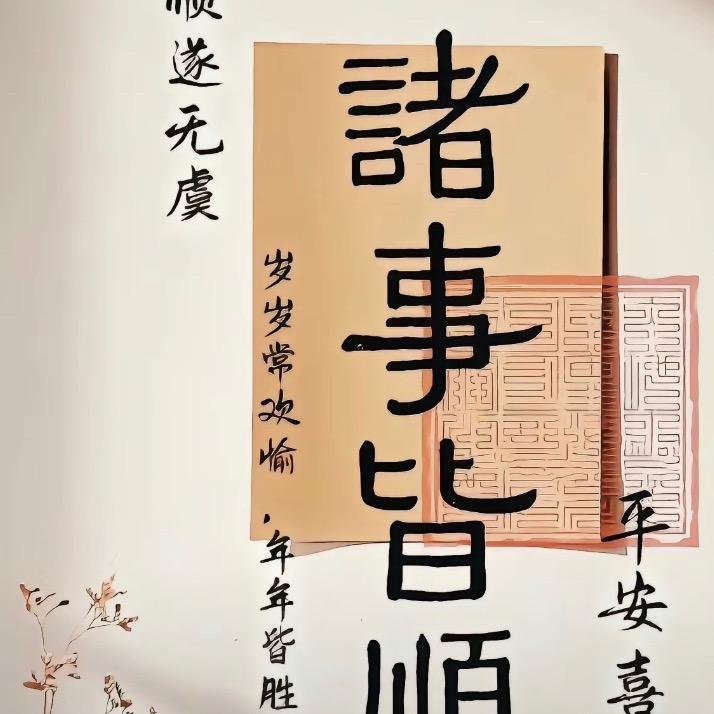 平安喜
諸事皆順
岁岁常欢愉,年年皆胜
顺遂无虞